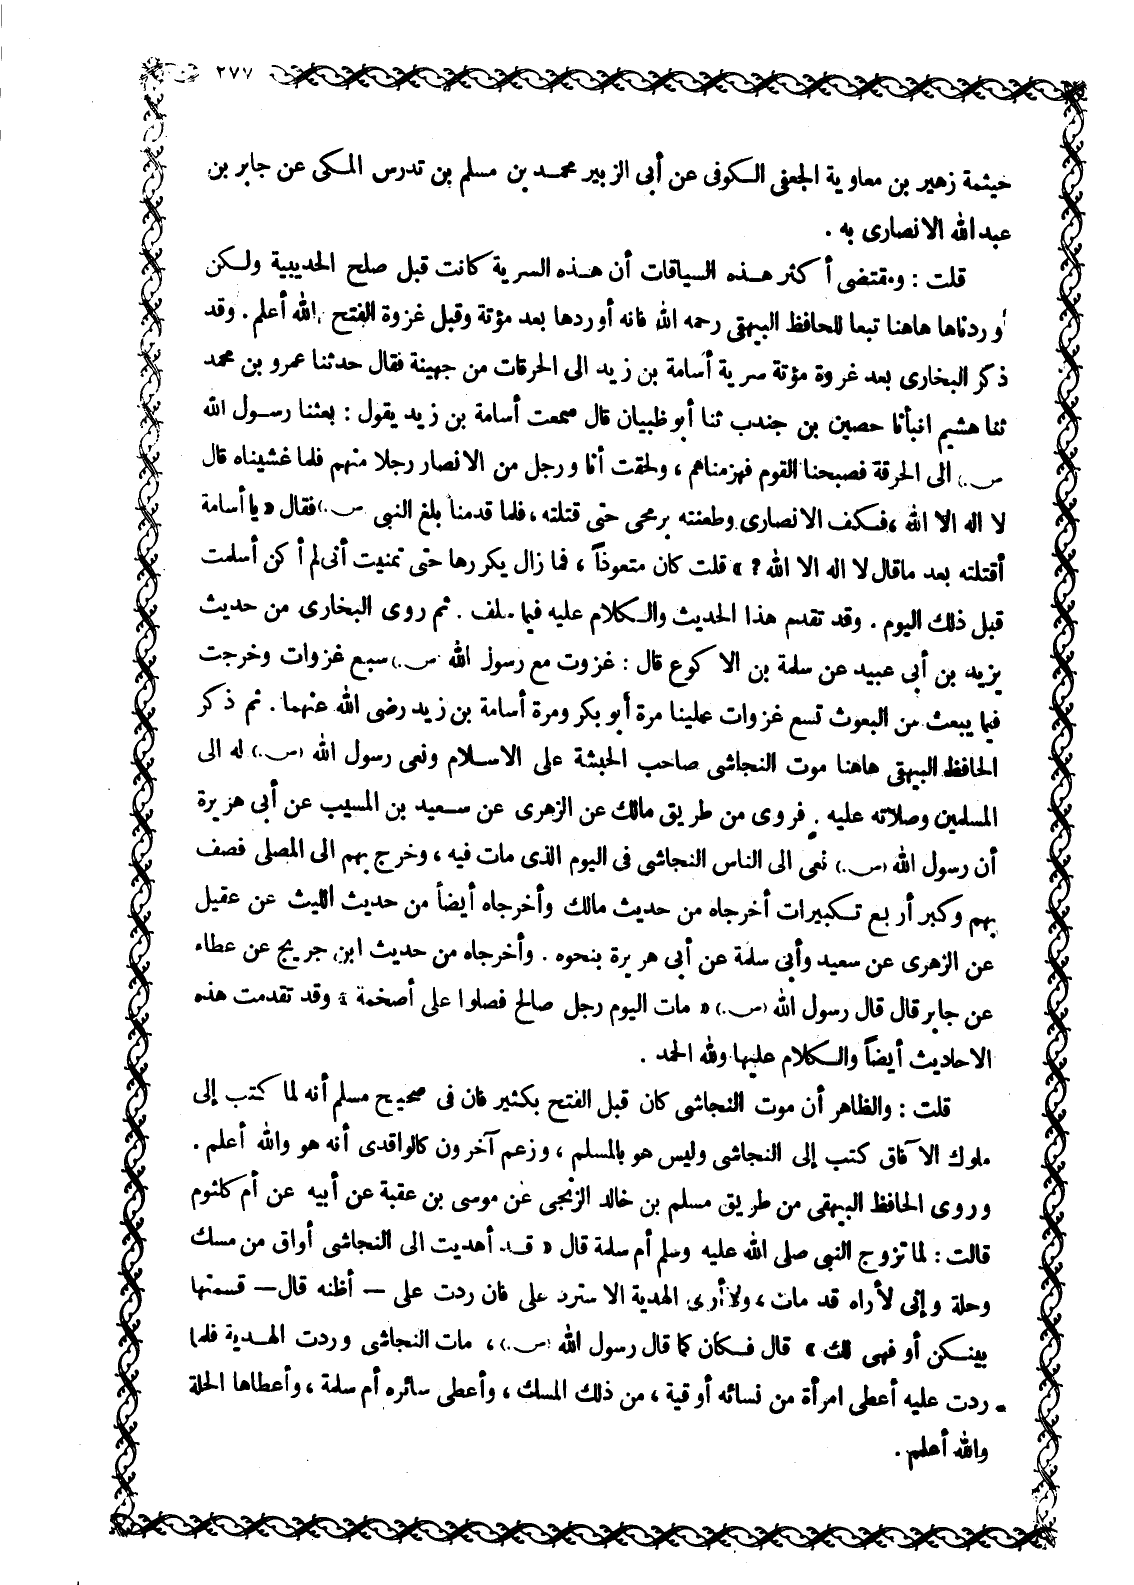 ٢٧٧
خيثمة زهير بن معاوية الجعفى الكوفى عن أبى الزبير محمد بن مسلم بن تدرس المكى عن جابر بن
عبد الله الانصارى به .
قلت : ومقتضى أكثر هذه السياقات أن هذه السرية كانت قبل صلح الحديبية ولكن
أوردناها هاهنا تبعا للحافظ البيهقى رحمه الله فانه أوردها بعد مؤتة وقبل غزوة الفتح والله أعلم . وقد
ذكر البخارى بعد غروة مؤتة سرية أسامة بن زيد الى الحرقات من جهينة فقال حدثنا عمرو بن محمد
ثنا هشيم انبأنا حصين بن جندب ثنا أبو ظبيان قال سمعت أسامة بن زيد يقول : بعثنا رسول الله
(ص.) الى الحرقة فصبحنا القوم فهزمناهم ، ولحقت أنا ورجل من الانصار رجلا منهم فلما غشيناه قال
لا اله الا الله ، فكف الانصارى وطعنته برمحى حتى قتلته ، فلما قدمنا بلغ النبى (ص.) فقال « يا أسامة
أقتلته بعد ماقال لا اله الا الله ؟ » قلت كان متعوذاً ، فما زال يكررها حتى تمنيت أنى لم أكن أسلمت
قبل ذلك اليوم . وقد تقدم هذا الحديث والكلام عليه فيما سلف . ثم روى البخارى من حديث
يزيد بن أبى عبيد عن سلمة بن الاكوع قال : غزوت مع رسول الله (ص.) سبع غزوات وخرجت
فيما يبعث من البعوث تسع غزوات علينا مرة أبو بكر ومرة أسامة بن زيد رضى الله عنهما . ثم ذكر
الحافظ البيهقى هاهنا موت النجاشى صاحب الحبشة على الاسلام ونعى رسول الله (ص.) له الى
المسلمين وصلاته عليه . فروى من طريق مالك عن الزهرى عن سعيد بن المسيب عن أبى هريرة
أن رسول الله (ص.) نعى الى الناس النجاشى فى اليوم الذى مات فيه ، وخرج بهم الى المصلى فصف
بهم وكبر أربع تكبيرات أخرجاه من حديث مالك وأخرجاه أيضاً من حديث الليث عن عقيل
عن الزهرى عن سعيد وأبى سلمة عن أبى هريرة بنحوه . وأخرجاه من حديث ابن جريج عن عطاء
عن جابر قال قال رسول الله (ص.) « مات اليوم رجل صالح فصلوا على أصخمة » وقد تقدمت هذه
الاحاديث أيضاً والكلام عليها ولله الحمد .
قلت : والظاهر أن موت النجاشى كان قبل الفتح بكثير فان فى صحيح مسلم أنه لما كتب إلى
ملوك الآفاق كتب إلى النجاشى وليس هو بالمسلم ، وزعم آخرون كالواقدى أنه هو والله أعلم .
وروى الحافظ البيهقى من طريق مسلم بن خالد الزنجى عن موسى بن عقبة عن أبيه عن أم كلثوم
قالت : لما تزوج النبى صلى الله عليه وسلم أم سلمة قال « قد أهديت الى النجاشى أواق من مسك
وحلة وإنى لأراه قد مات ، ولا أرى الهدية الا سترد على فان ردت على — أظنه قال — قسمتها
بينكن أو فهى لك » قال فكان كما قال رسول الله (ص.) ، مات النجاشى وردت الهدية فلما
ردت عليه أعطى امرأة من نسائه أوقية ، من ذلك المسك ، وأعطى سائره أم سلمة ، وأعطاها الحلة
والله أعلم .